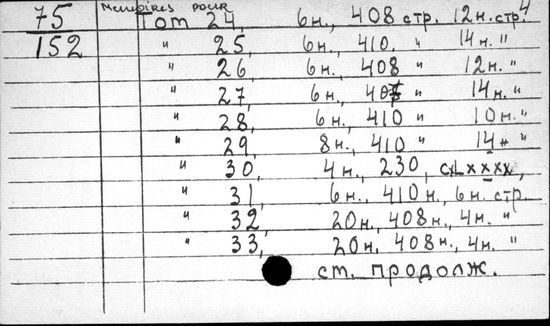 75 Memoires pour Том 24, 6н., 408 стр. 12н. стр. 4
152 " 25, 6н., 410, " 14н. "
" 26, 6н., 408 " 12н. "
" 27, 6н., " 14н. "
" 28, 6н., 410 " 10н. "
" 29, 8н., 410 " 14н "
" 30, 4н., 230, cxLxxxx,
" 31, 6н., 410н., 6н. стр.
" 32, 20н., 408н., 4н. "
" 33, 20н. 408н., 4н. "
ст. продолж.